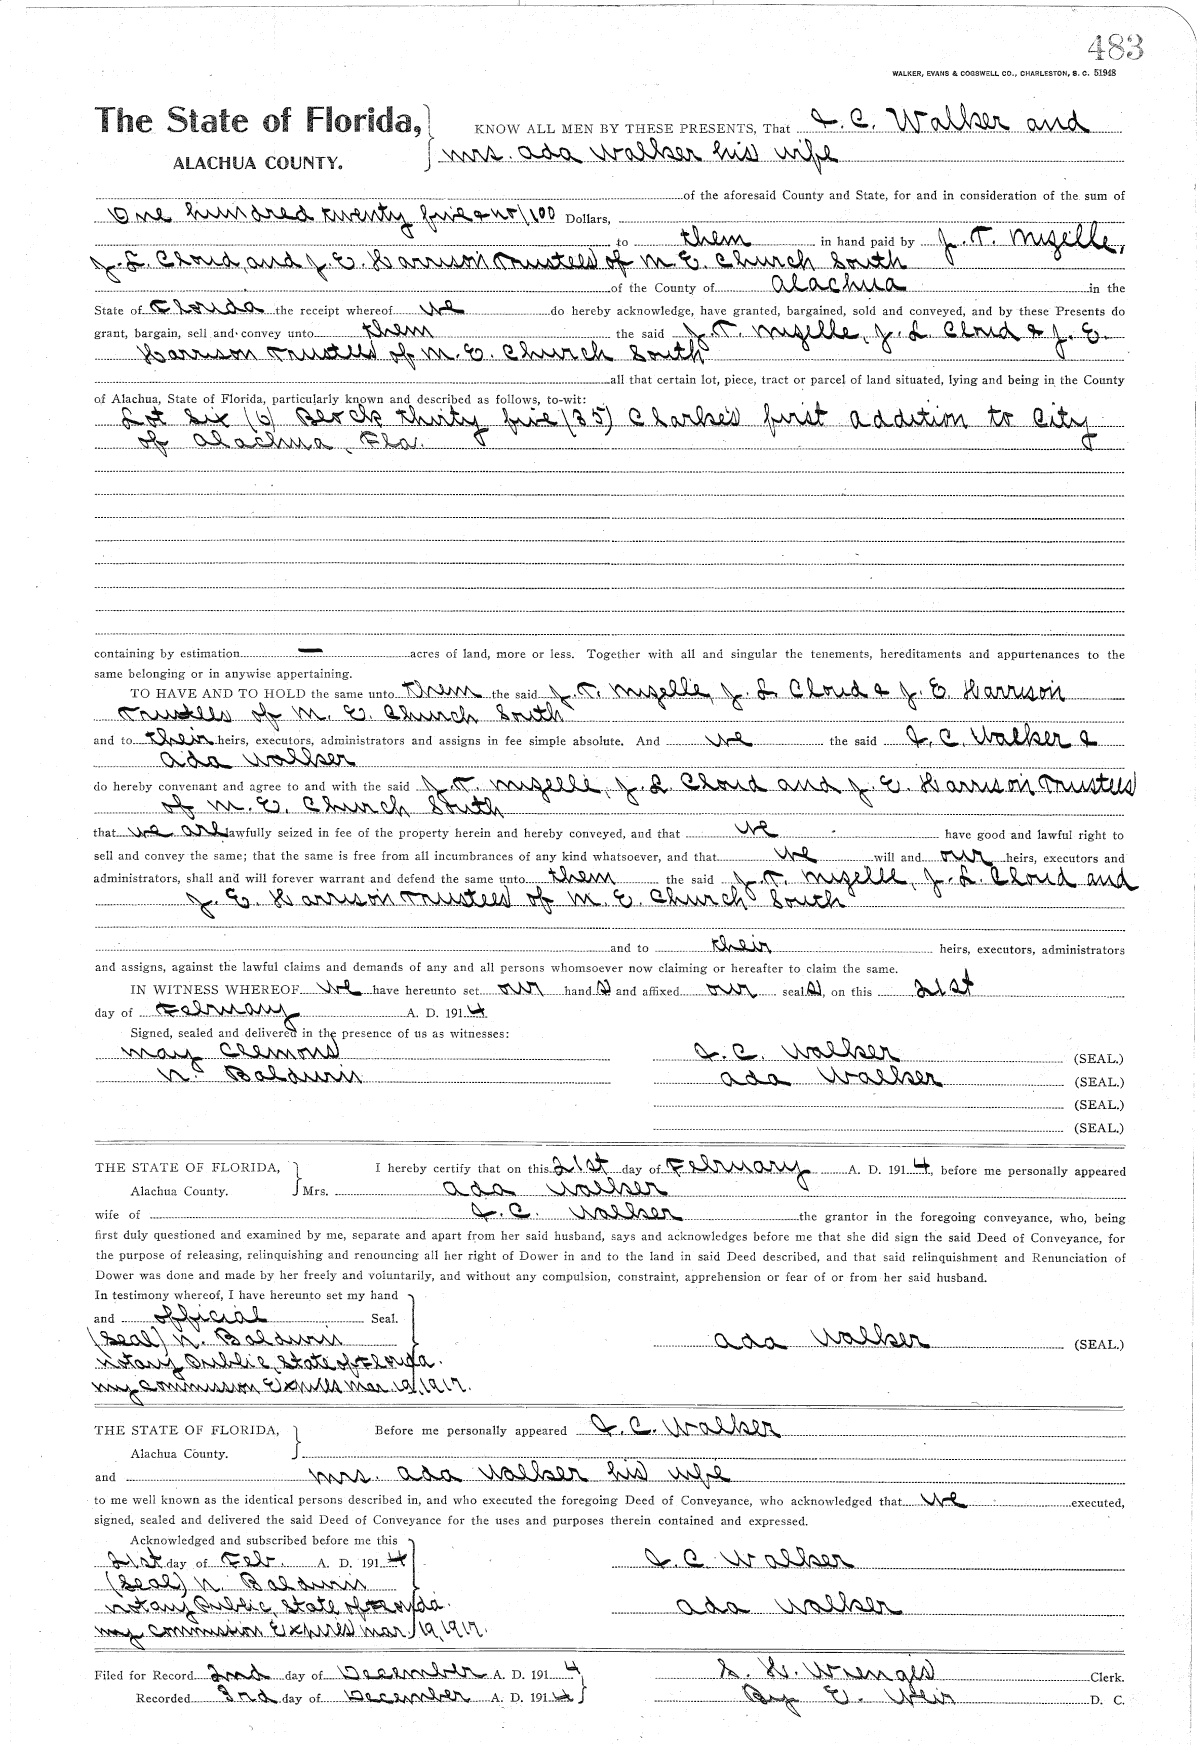 483
WALKER, EVANS & COGSWELL CO., CHARLESTON, S. C. 51948
The State of Florida, KNOW ALL MEN BY THESE PRESENTS, That C. Walker and
ALACHUA COUNTY. Mrs. Ada Walker his wife
of the aforesaid County and State, for and in consideration of the sum of
One hundred twenty five & no/100 Dollars,
to them in hand paid by J. T. Mizelle,
J. L. Cloud, and J. E. Harrison Trustees of M E. Church South
of the County of Alachua in the
State of Florida the receipt whereof we do hereby acknowledge, have granted, bargained, sold and conveyed, and by these Presents do
grant, bargain, sell and convey unto them the said J. T. Mizelle, J. L Cloud & J. E.
Harrison Trustees of M. E. Church South
all that certain lot, piece, tract or parcel of land situated, lying and being in the County
of Alachua, State of Florida, particularly known and described as follows, to-wit:
Lot Six (6) Block thirty five (35) Clark's first addition to City
of Alachua, Fla.
containing by estimation — acres of land, more or less. Together with all and singular the tenements, hereditaments and appurtenances to the
same belonging or in anywise appertaining.
TO HAVE AND TO HOLD the same unto them the said J. T. Mizelle, J. L Cloud & J. E Harrison
Trustees of M. E. Church South
and to their heirs, executors, administrators and assigns in fee simple absolute. And we the said C. Walker &
Ada Walker
do hereby convenant and agree to and with the said J. T. Mizelle, J. L Cloud and J. E Harrison Trustees
of M. E. Church South
that we are lawfully seized in fee of the property herein and hereby conveyed, and that we have good and lawful right to
sell and convey the same; that the same is free from all incumbrances of any kind whatsoever, and that we will and our heirs, executors and
administrators, shall and will forever warrant and defend the same unto them the said J. T. Mizelle, J. L. Cloud and
J. E. Harrison Trustees of M. E. Church South
and to their heirs, executors, administrators
and assigns, against the lawful claims and demands of any and all persons whomsoever now claiming or hereafter to claim the same.
IN WITNESS WHEREOF we have hereunto set our hand s and affixed our seal s, on this 21st
day of February A. D. 1914.
Signed, sealed and delivered in the presence of us as witnesses:
May Clemons C. Walker (SEAL.)
N. Baldwin Ada Walker (SEAL.)
(SEAL.)
(SEAL.)
THE STATE OF FLORIDA, I hereby certify that on this 21st day of February A. D. 1914, before me personally appeared
Alachua County. Mrs. Ada Walker
wife of C. Walker the grantor in the foregoing conveyance, who, being
first duly questioned and examined by me, separate and apart from her said husband, says and acknowledges before me that she did sign the said Deed of Conveyance, for
the purpose of releasing, relinquishing and renouncing all her right of Dower in and to the land in said Deed described, and that said relinquishment and Renunciation of
Dower was done and made by her freely and voluntarily, and without any compulsion, constraint, apprehension or fear of or from her said husband.
In testimony whereof, I have hereunto set my hand
and official Seal.
(Seal) N. Baldwin Ada Walker (SEAL)
Notary Public, State of Florida.
My Commission Expires Mar. 19, 1917.
THE STATE OF FLORIDA, Before me personally appeared C. Walker
Alachua County.
and Mrs. Ada Walker his wife
to me well known as the identical persons described in, and who executed the foregoing Deed of Conveyance, who acknowledged that we executed,
signed, sealed and delivered the said Deed of Conveyance for the uses and purposes therein contained and expressed.
Acknowledged and subscribed before me this
21st day of Feb. A. D. 1914 C Walker
(Seal) N. Baldwin
Notary Public, State of Florida. Ada Walker
My Commission Expires Mar. 19, 1917.
Filed for Record 2nd day of December A. D. 1914 Clerk.
Recorded 3rd day of December A. D. 1914 By E. Weir D. C.